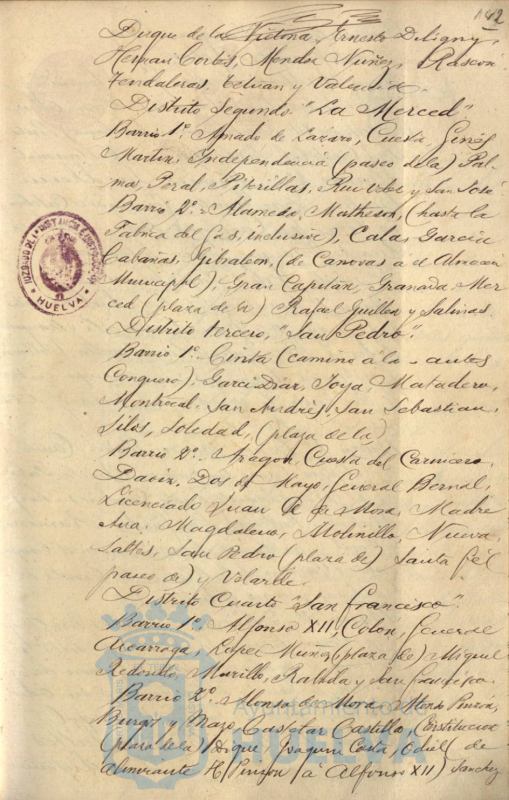 142
Duque de la Victoria, Ernesto Deligny,
Hernan Cortés, Mendez Nuñez, Rascon
Tendaleras, Tetuan y
Distrito Segundo "La Merced"
Barrio 1º Amado de Lazaro, Cuesta, Ginés
Martin, Independencia (paseo de la) Pal-
ma, Peral, Piterillas, Rui Velez y San José
Barrio 2º. Alameda, Matheson, (hasta la
Fabrica del Gas, inclusive), Calas, Garcia
Cabañas, Gibraleon, (de Canovas a el Almacen
Municipal), Gran Capitán, Granada, Mer-
ced (plaza de la) Rafael Guillen y Salinas.
Distrito tercero, "San Pedro".
Barrio 1º Cinta (camino á la - antes
Conquero), Garci Diaz, Joya, Matadero,
Montrocal, San Andrés, San Sebastian,
Silos, Soledad, (plaza de la)
Barrio 2º. Aragon, Cuesta del Carnicero,
Daoiz, Dos de Mayo, General Bernal,
Licenciado Juan A. de Mora, Madre
Ana, Magdalena, Molinillo, Nueva,
Saltes, San Pedro (plaza de) Santa Fé (
paseo de) y Velarde.
Distrito Cuarto "San Francisco".
Barrio 1º Alfonso XII, Colón, General
Azcárraga, Lopez Muñoz (plaza de) Miguel
Redondo, Murillo, Rabida y San Francisco.
Barrio 2º. Alonso de Mora, Alonso Pinzón,
Burgos y Mazo, Castelar, Castillo, Constitucion
(plaza de la) Duque, Joaquin Costa, Odiel (de
Almirante H. Pinzon á Alfonso XII) Sanchez
HUELVA
Ayuntamiento de
HUELVA